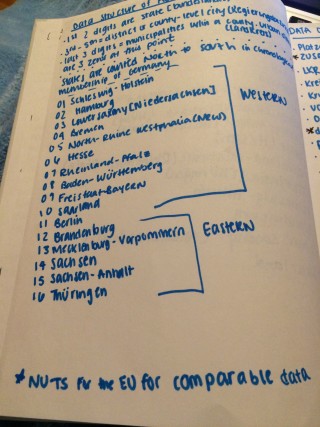 2. Data structure of
1st 2 digits are state (Bundesland)
3rd - 5th = district or county-level city
last 3 digits = municipalities within a county
are 3 zeros at this point
States are counted North to South in chronological
membership of Germany
01 Schleswig-Holstein
02 Hamburg
03 Lower Saxony [Niedersachsen]
04 Bremen
05 North-Rhine Westphalia (NRW)
06 Hesse
07 Rheinland-Pfalz
08 Baden-Württemberg
09 Freistaat-Bayern
10 Saarland
WESTERN
11 Berlin
12 Brandenburg
13 Mecklenburg-Vorpommern
14 Sachsen
15 Sachsen-Anhalt
16 Thüringen
EASTERN
* NUTS for the EU for comparable data
DATA